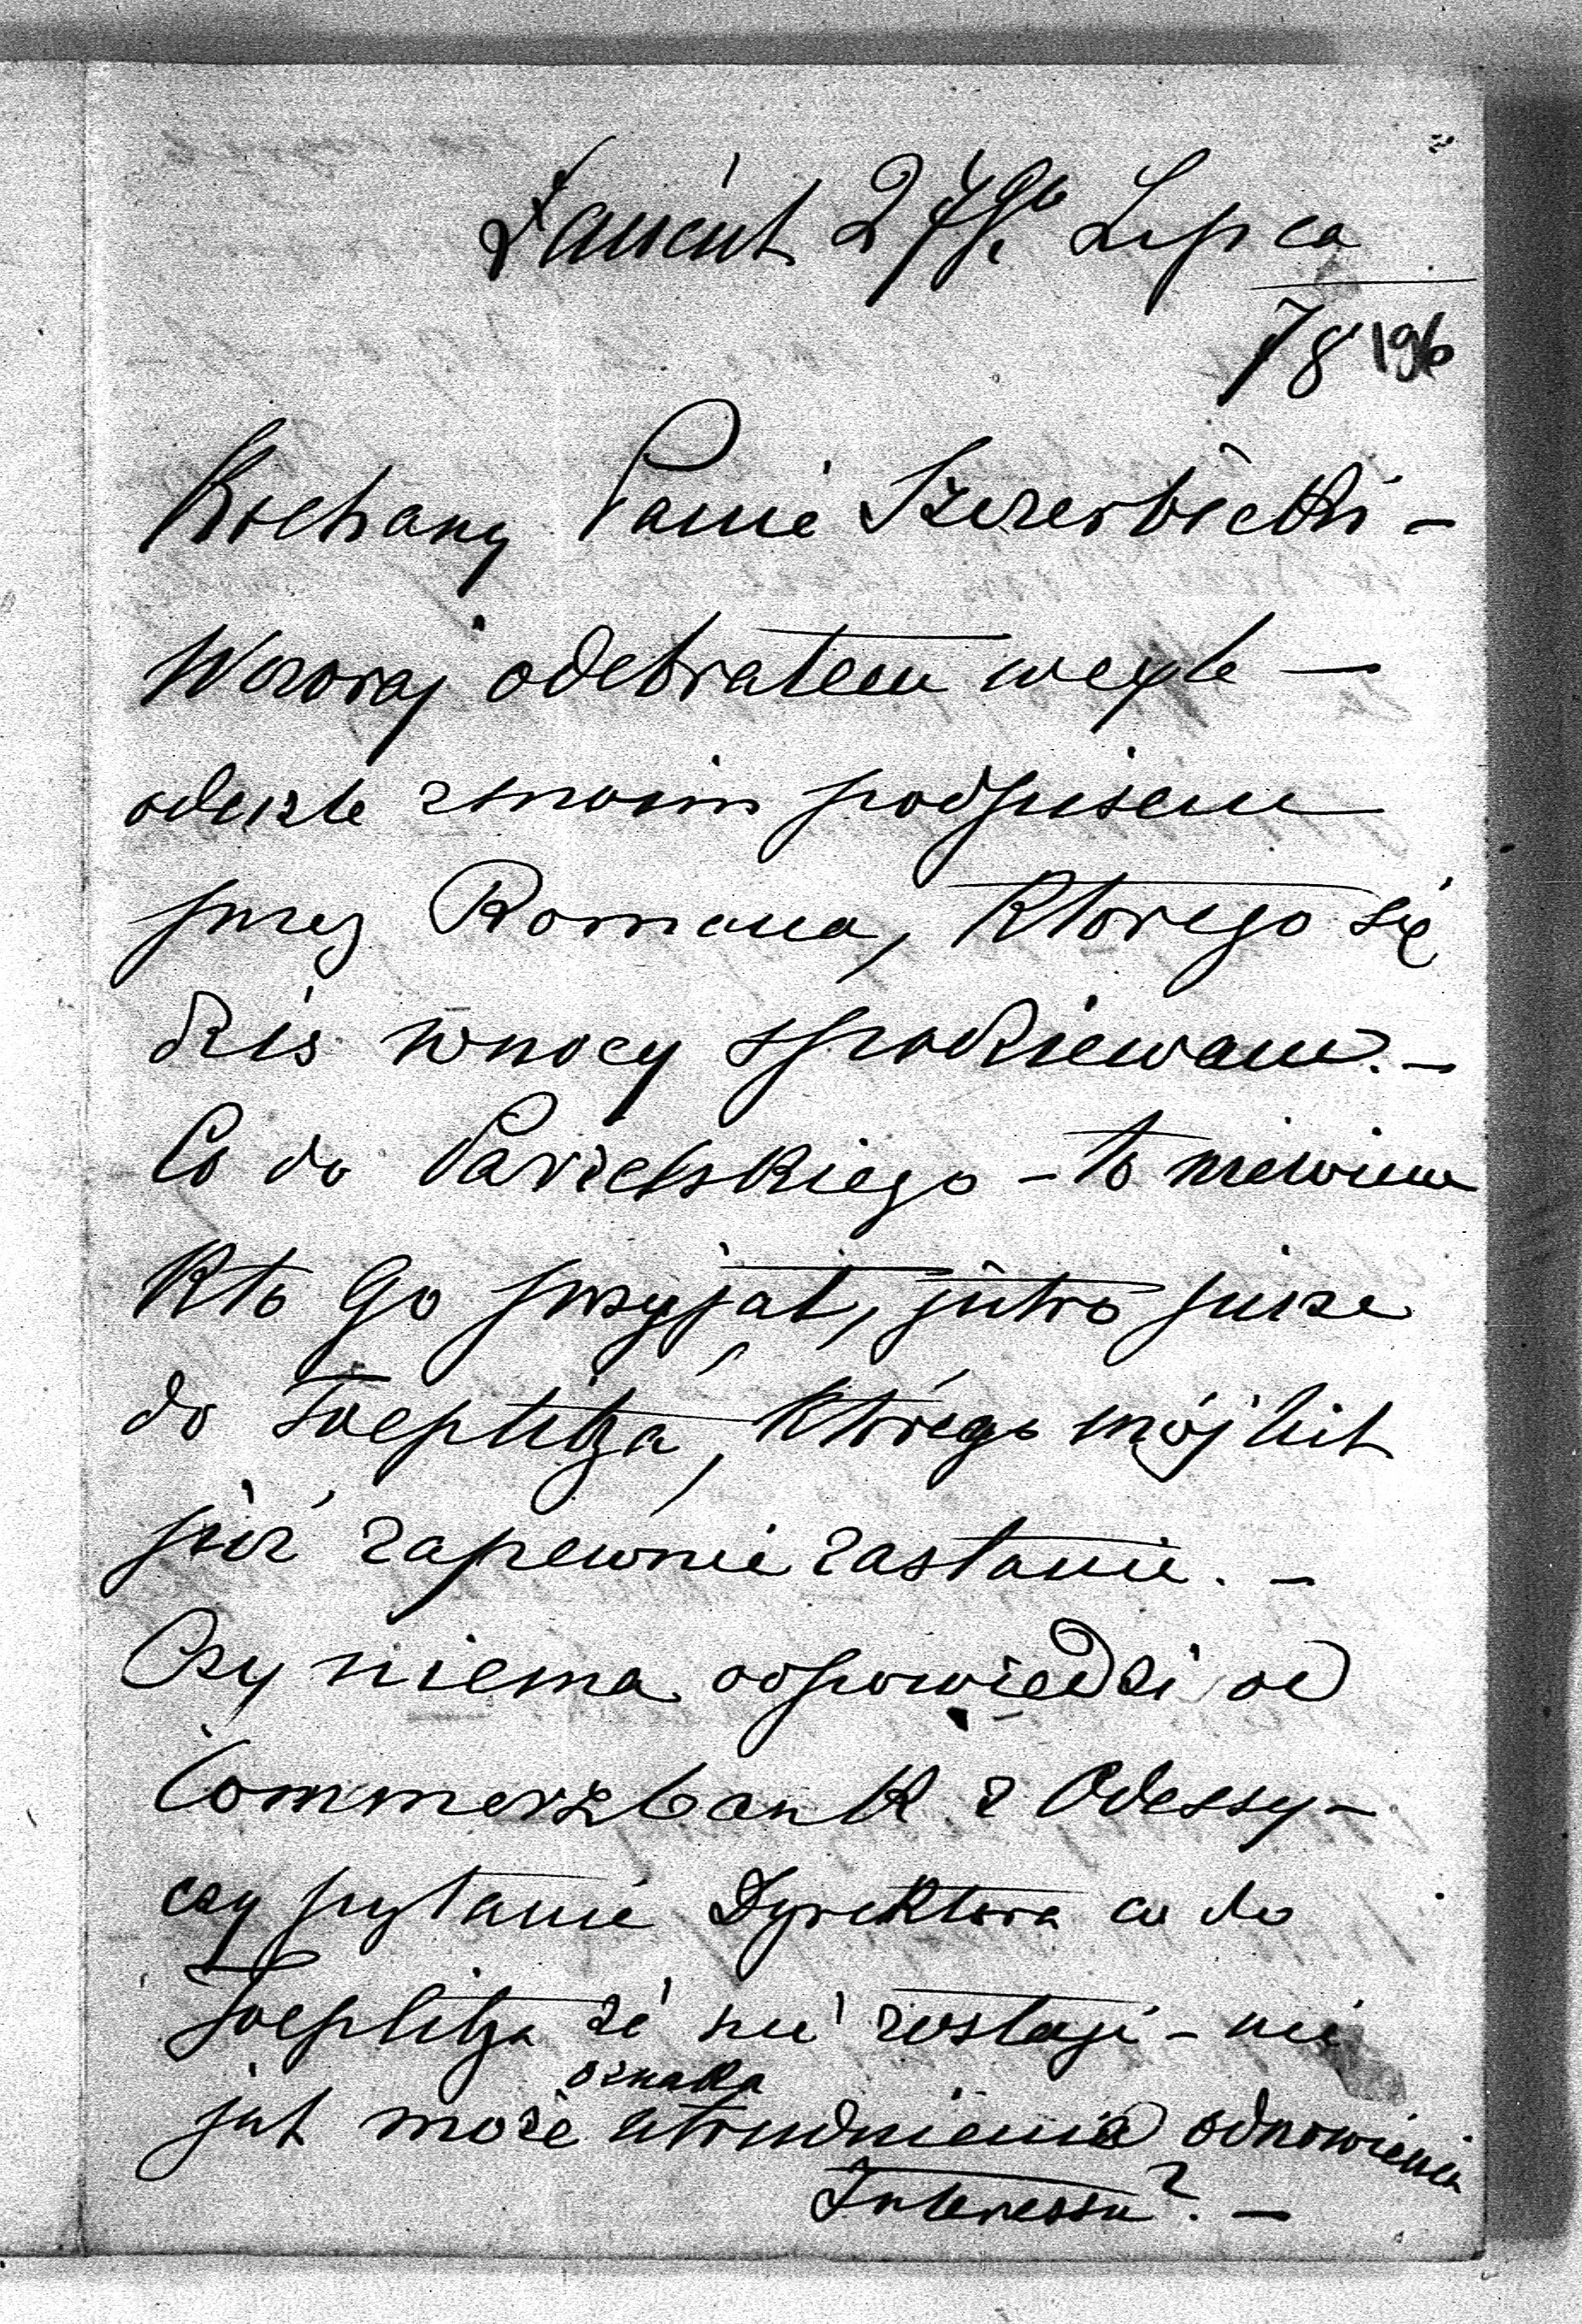 Łańcut 27go Lipca
78 196
Kochany Panie Szczerbicki -
Wczoraj odebrałem wexle -
odeszle zmoim podpisem
przez Romana, Ktorego się
dziś wnocy spodziewam. -
Co do Parielskiego - to niewiem
Kto Go przyjał, jutro pisze
do Toeplitza, Którego mój list
już zapewnie zastanie. -
Czy niema odpowiedzi od
Commerzbank z Odessy -
czy pytanie Dyrektora co do
Toeplitza że nie zostaje - nie
jest może oznaka utrudnienia odnowienia
Interessu? -